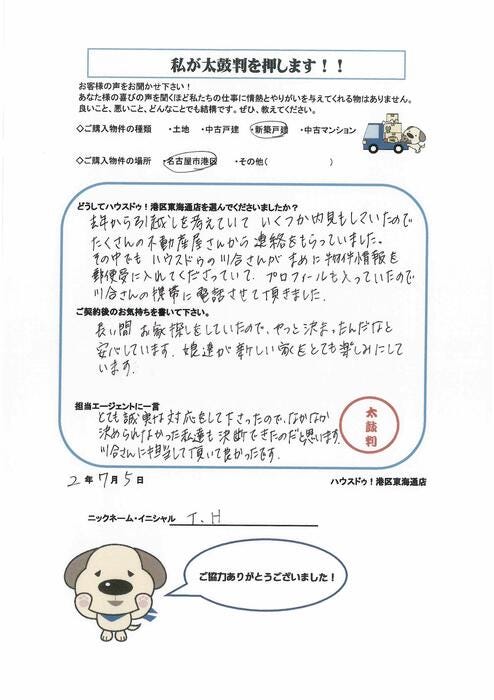 私が太鼓判を押します！！
お客様の声をお聞かせ下さい！
あなた様の喜びの声を聞くほど私たちの仕事に情熱とやりがいを与えてくれる物はありません。
良いこと、悪いこと、どんなことでも結構です。ぜひ、教えてください。
◇ご購入物件の種類 ・土地 ・中古戸建 ・新築戸建 ・中古マンション
◇ご購入物件の場所 ・名古屋市港区 ・その他（ ）
どうしてハウスドゥ！港区東海通店を選んでくださいましたか？
去年から引越しを考えていて いくつか内見もしていたので
たくさんの不動産屋さんから連絡をもらっていました。
その中でも ハウスドゥの川合さんが まめに物件情報を
郵便受に入れてくださっていて、プロフィールも入っていたので
川合さんの携帯に電話させて頂きました。
ご契約後のお気持ちを書いて下さい。
長い間 お家探しをしていたので、やっと決まったんだなと
安心しています。娘達が新しい家をとても楽しみにして
います。
担当エージェントに一言
とても誠実な対応をして下さったので、なかなか
決められなかった私達も決断できたのだと思います。
川合さんに担当して頂いて良かったです。
太鼓判
2年7月5日
ハウスドゥ！港区東海通店
ニックネーム・イニシャル T.H
ご協力ありがとうございました！